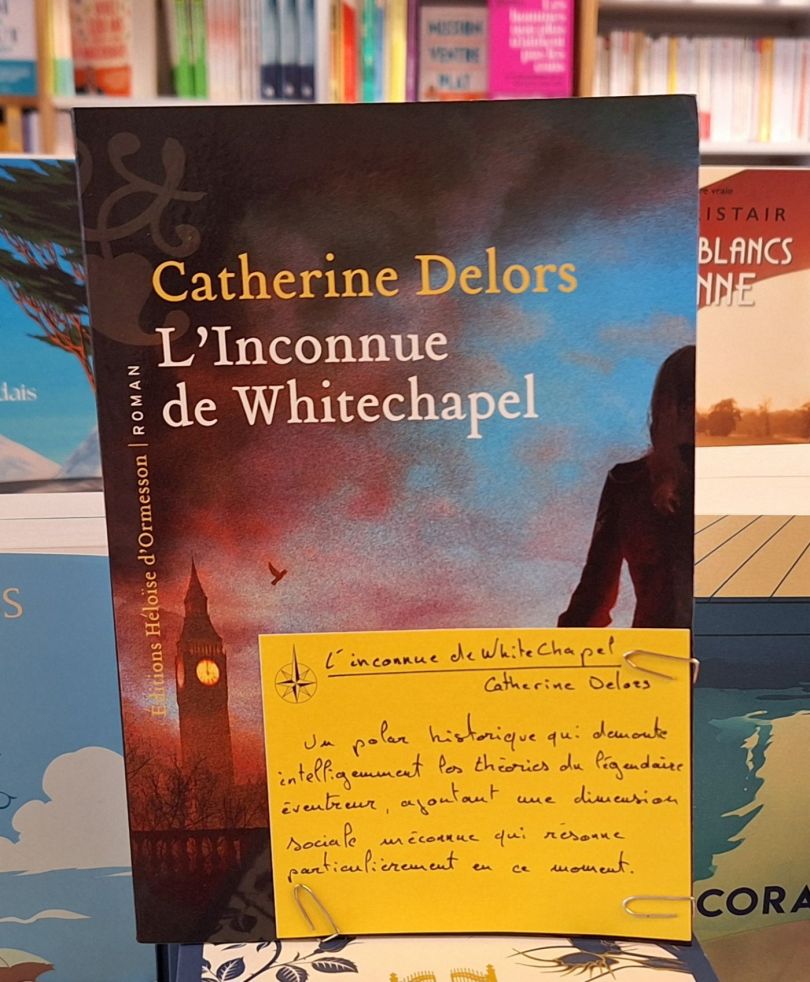 MISSION
VENTRE
PLAT
Les
hommes
non plus
ne
pas le
Catherine Delors
L'Inconnue
de Whitechapel
Editions Héloïse d'Ormesson | ROMAN
L'inconnue de WhiteChapel
Catherine Delors
Un polar historique qui démonte
intelligemment les théories du légendaire
éventreur, ajoutant une dimension
sociale méconnue qui résonne
particulièrement en ce moment.
dais
S
vraie
ISTAIR
BLANCS
NNE
CORA